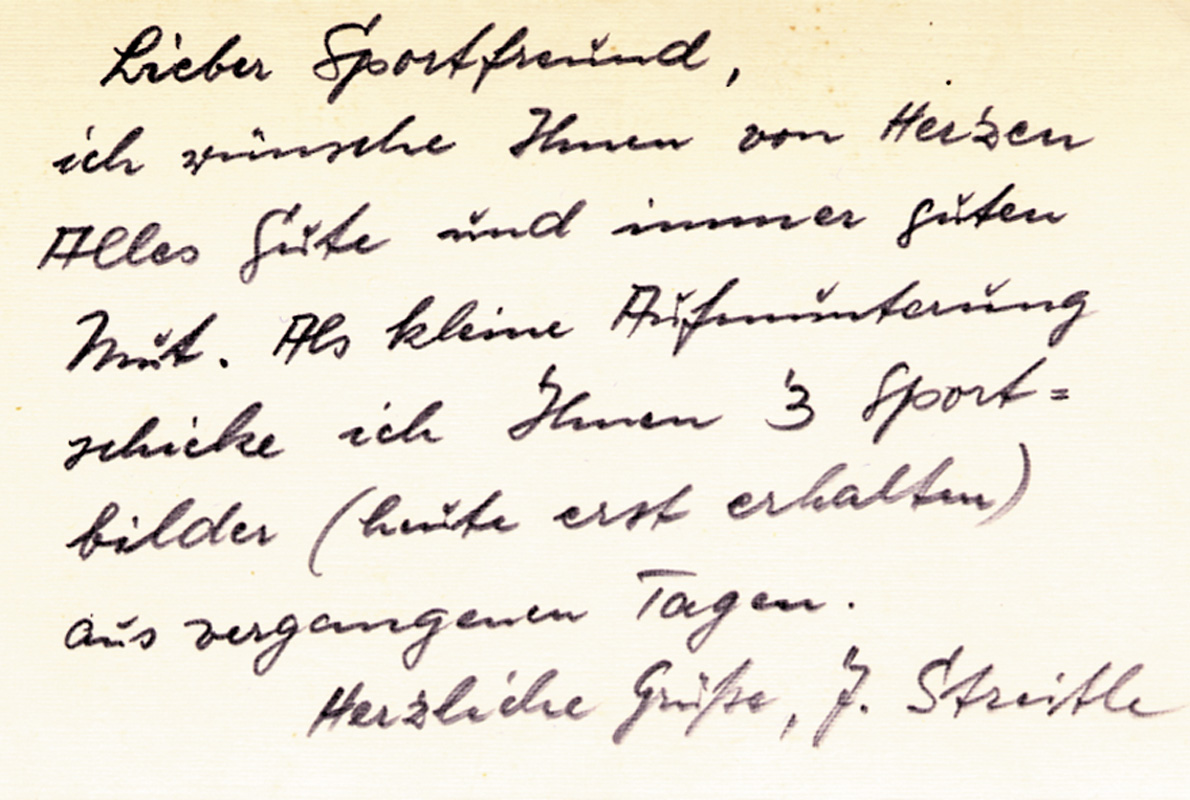 Lieber Sportfreund,
ich wünsche Ihnen von Herzen
Alles Gute und immer guten
Mut. Als kleine Aufmunterung
schicke ich Ihnen 3 Sport=
bilder (heute erst erhalten)
aus vergangenen Tagen.
Herzliche Grüße, J. Streitle